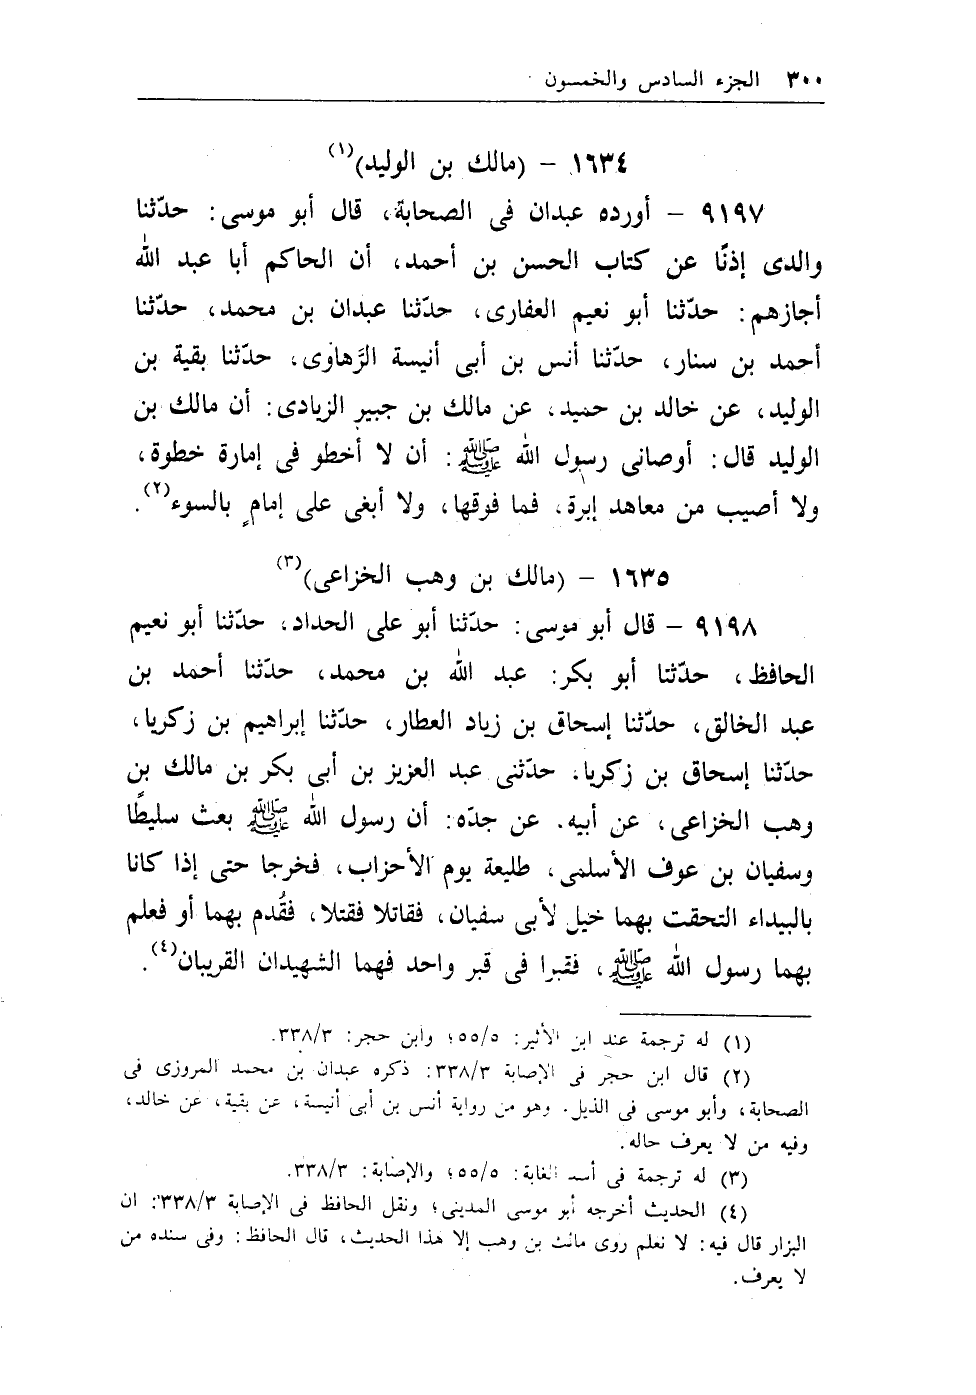 ٣٠٠ الجزء السادس والخمسون
١٦٣٤ - (مالك بن الوليد)(١)
٩١٩٧ - أورده عبدان فى الصحابة، قال أبو موسى: حدّثنا
والدى إذنًا عن كتاب الحسن بن أحمد، أن الحاكم أبا عبد الله
أجازهم: حدّثنا أبو نعيم الغفارى، حدّثنا عبدان بن محمد، حدّثنا
أحمد بن سنار، حدّثنا أنس بن أبى أنيسة الرَّهاوى، حدّثنا بقية بن
الوليد، عن خالد بن حميد، عن مالك بن جبير الزيادى: أن مالك بن
الوليد قال: أوصانى رسول الله ﷺ: أن لا أخطو فى إمارة خطوة،
ولا أصيب من معاهد إبرة، فما فوقها، ولا أبغى على إمامٍ بالسوء(٢).
١٦٣٥ - (مالك بن وهب الخزاعى)(٣)
٩١٩٨ - قال أبو موسى: حدّثنا أبو على الحداد، حدّثنا أبو نعيم
الحافظ، حدّثنا أبو بكر: عبد الله بن محمد، حدّثنا أحمد بن
عبد الخالق، حدّثنا إسحاق بن زياد العطار، حدّثنا إبراهيم بن زكريا،
حدّثنا إسحاق بن زكريا، حدّثنى عبد العزيز بن أبى بكر بن مالك بن
وهب الخزاعى، عن أبيه. عن جدّه: أن رسول الله ﷺ بعث سليطًا
وسفيان بن عوف الأسلمى، طليعة يوم الأحزاب، فخرجا حتى إذا كانا
بالبيداء التحقت بهما خيل لأبى سفيان، فقاتلا فقتلا، فقُدم بهما أو فعلم
بهما رسول الله ﷺ، فقبرا فى قبر واحد فهما الشهيدان القريبان(٤).
(١) له ترجمة عند ابن الأثير: ٥٥/٥؛ وابن حجر: ٣٣٨/٣.
(٢) قال ابن حجر فى الإصابة ٣٣٨/٣: ذكره عبدان بن محمد المروزى فى
الصحابة، وأبو موسى فى الذيل. وهو من رواية أنس بن أبى أنيسة، عن بقية، عن خالد،
وفيه من لا يعرف حاله.
(٣) له ترجمة فى أسد الغابة: ٥٥/٥؛ والإصابة: ٣٣٨/٣.
(٤) الحديث أخرجه أبو موسى المدينى؛ ونقل الحافظ فى الإصابة ٣٣٨/٣: ان
البزار قال فيه: لا نعلم روى مالك بن وهب إلا هذا الحديث، قال الحافظ: وفى سنده من
لا يعرف.